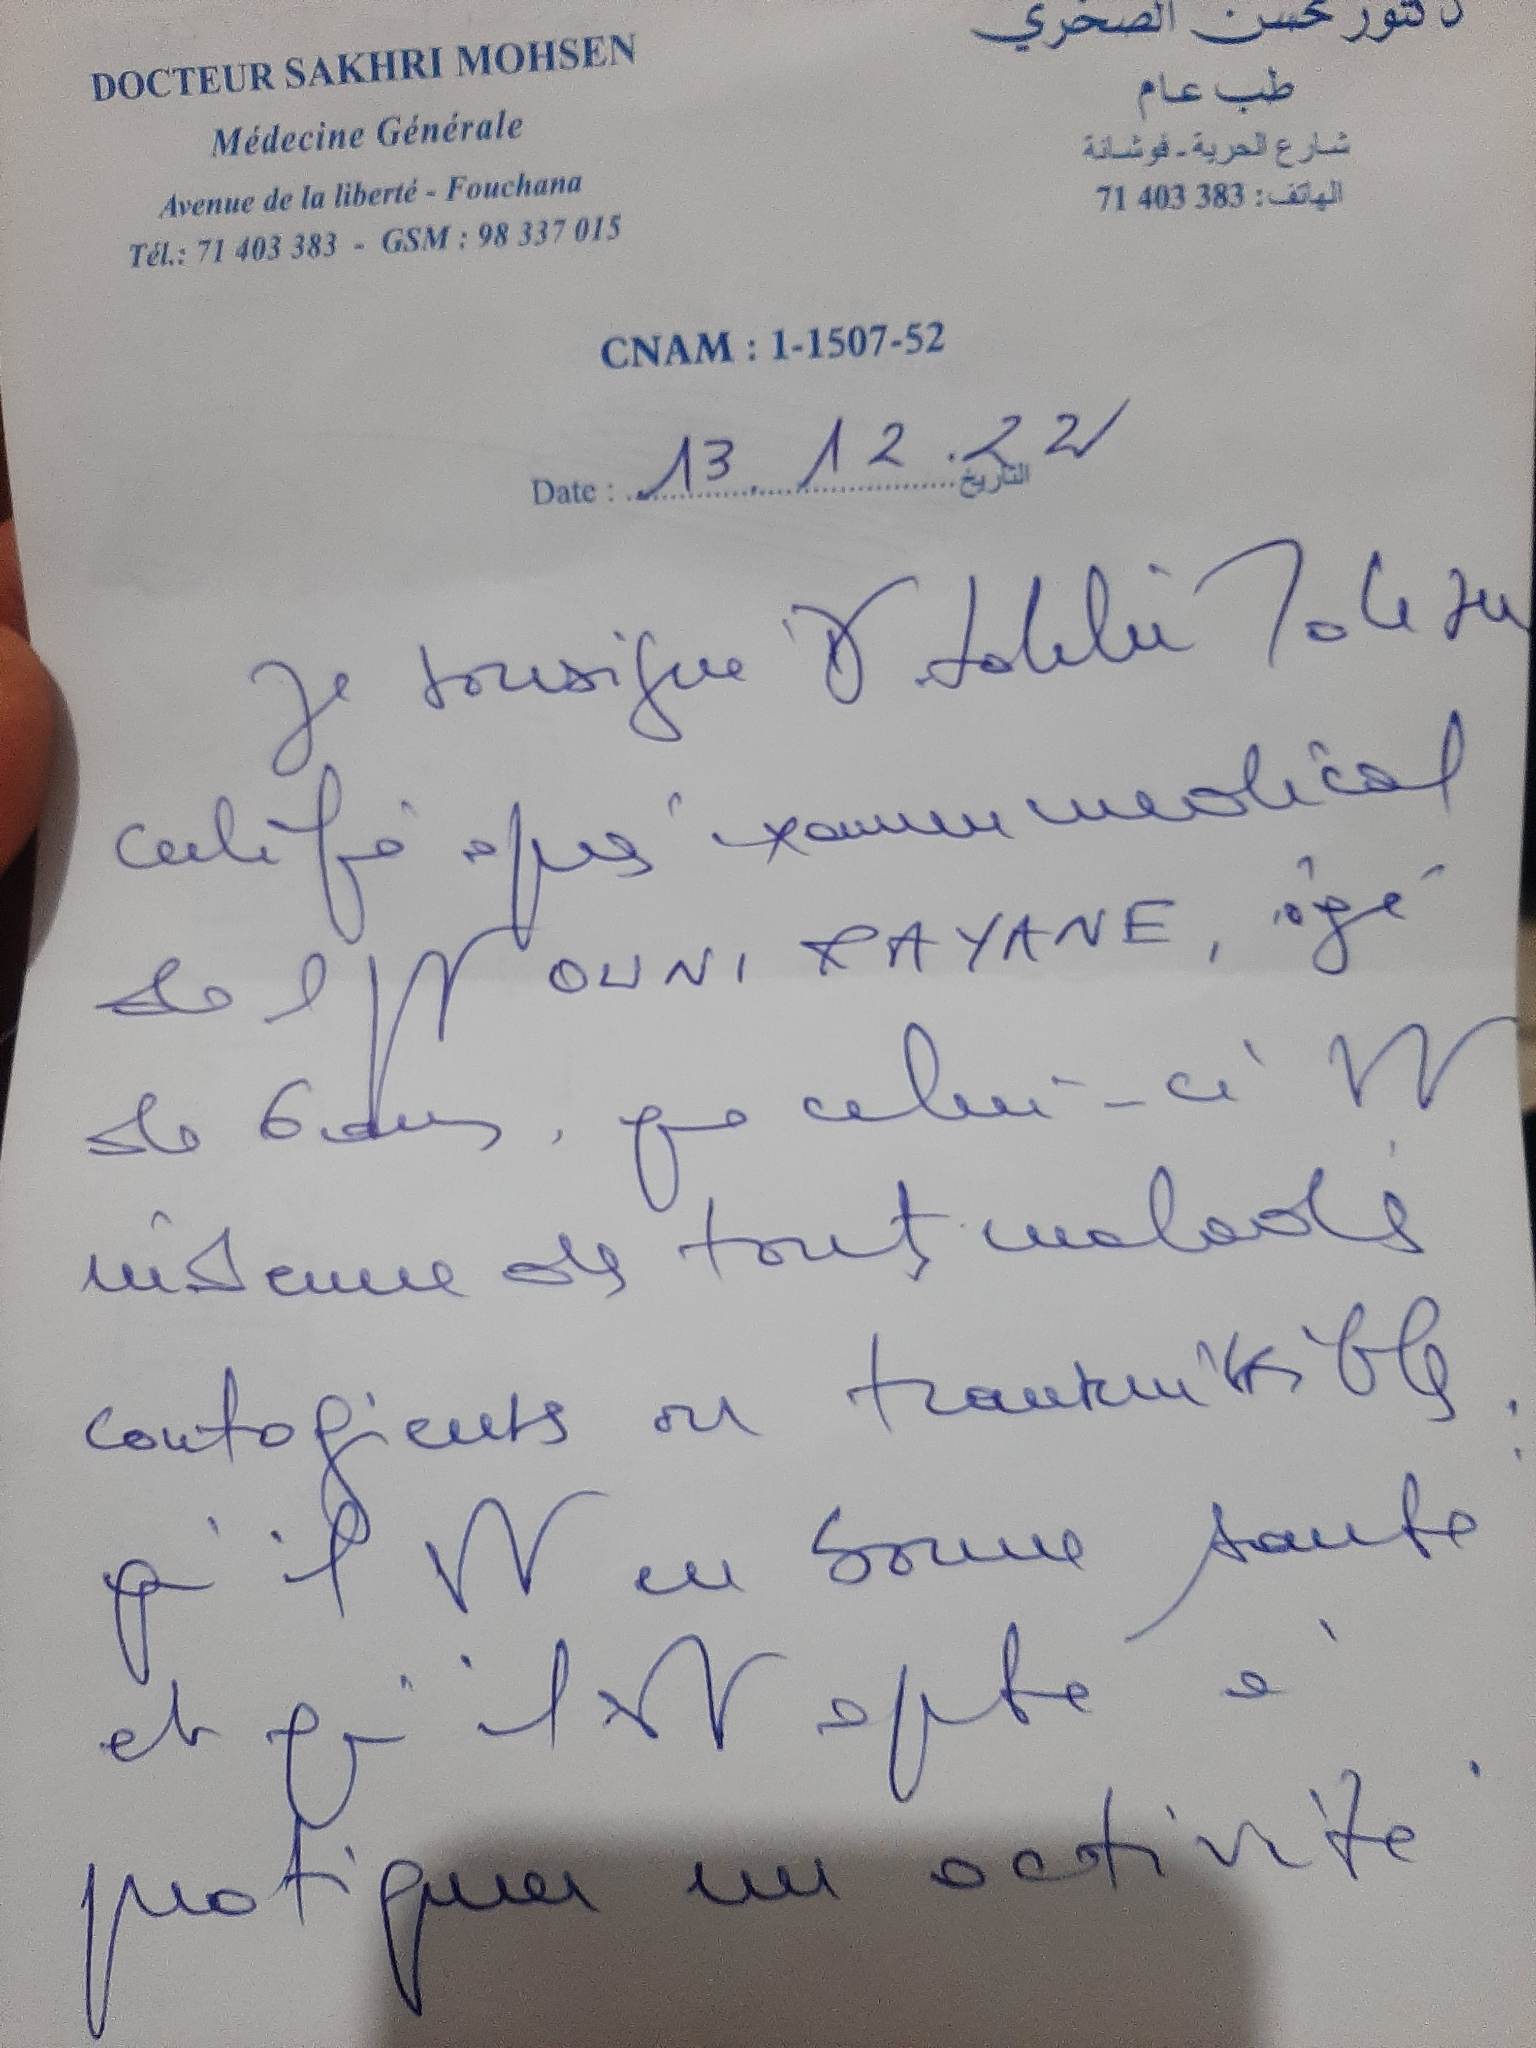 DOCTEUR SAKHRI MOHSEN
Médecine Générale
Avenue de la liberté - Fouchana
Tél.: 71 403 383 - GSM : 98 337 015
دكتور محسن الصخري
طب عام
شارع الحرية - فوشانة
الهاتف : 383 403 71
CNAM : 1-1507-52
Date : 13.12.22 التاريخ
Je sousigne Dr Sakhri Mohsen
certifie après examen medical
de l OUNI RAYANE, âgé
de 6 ans, que celui-ci
indemne de tout maladie
contagieuse ou transmissible
qu'il en bonne santé
et qu'il apte à
pratiquer un activité